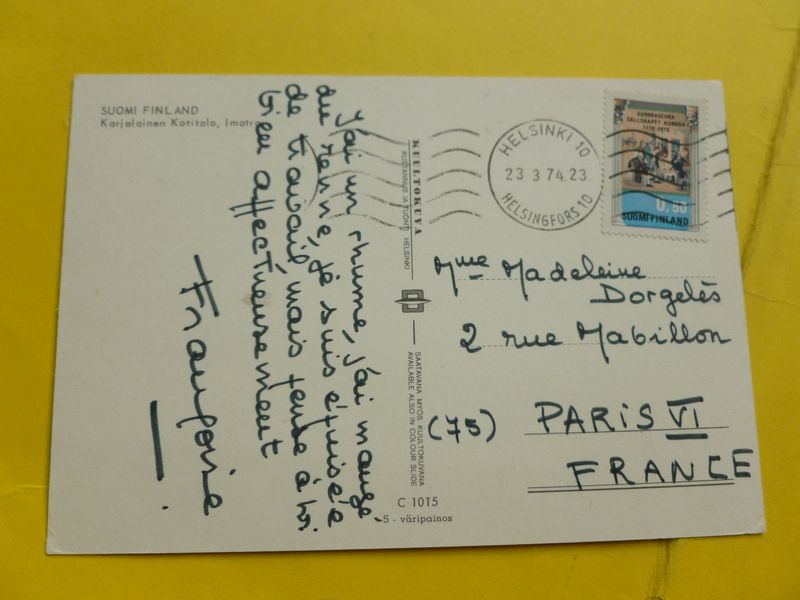 SUOMI FINLAND
Karjalainen Kotitalo, Imatra
J'ai un rhume, j'ai mangé
du renne, je suis épuisée
de travail, mais tendre à toi
bien affectueusement
KUULTOKUVA
KUSTANNUS JA TUONTI HELSINKI
SAATAVANA MYÖS KUULTOKUVANA
AVAILABLE ALSO IN COLOUR SLIDE
C 1015
5 - väripainos
HELSINKI 10
23 3 74.23.
HELSINGFORS 10
AURORASEURA
SÄLLSKAPET AURORA
1770-1970
0,50
SUOMI-FINLAND
Mme Madeleine
Dorgelès
2 rue Mabillon
(75) PARIS VI
FRANCE